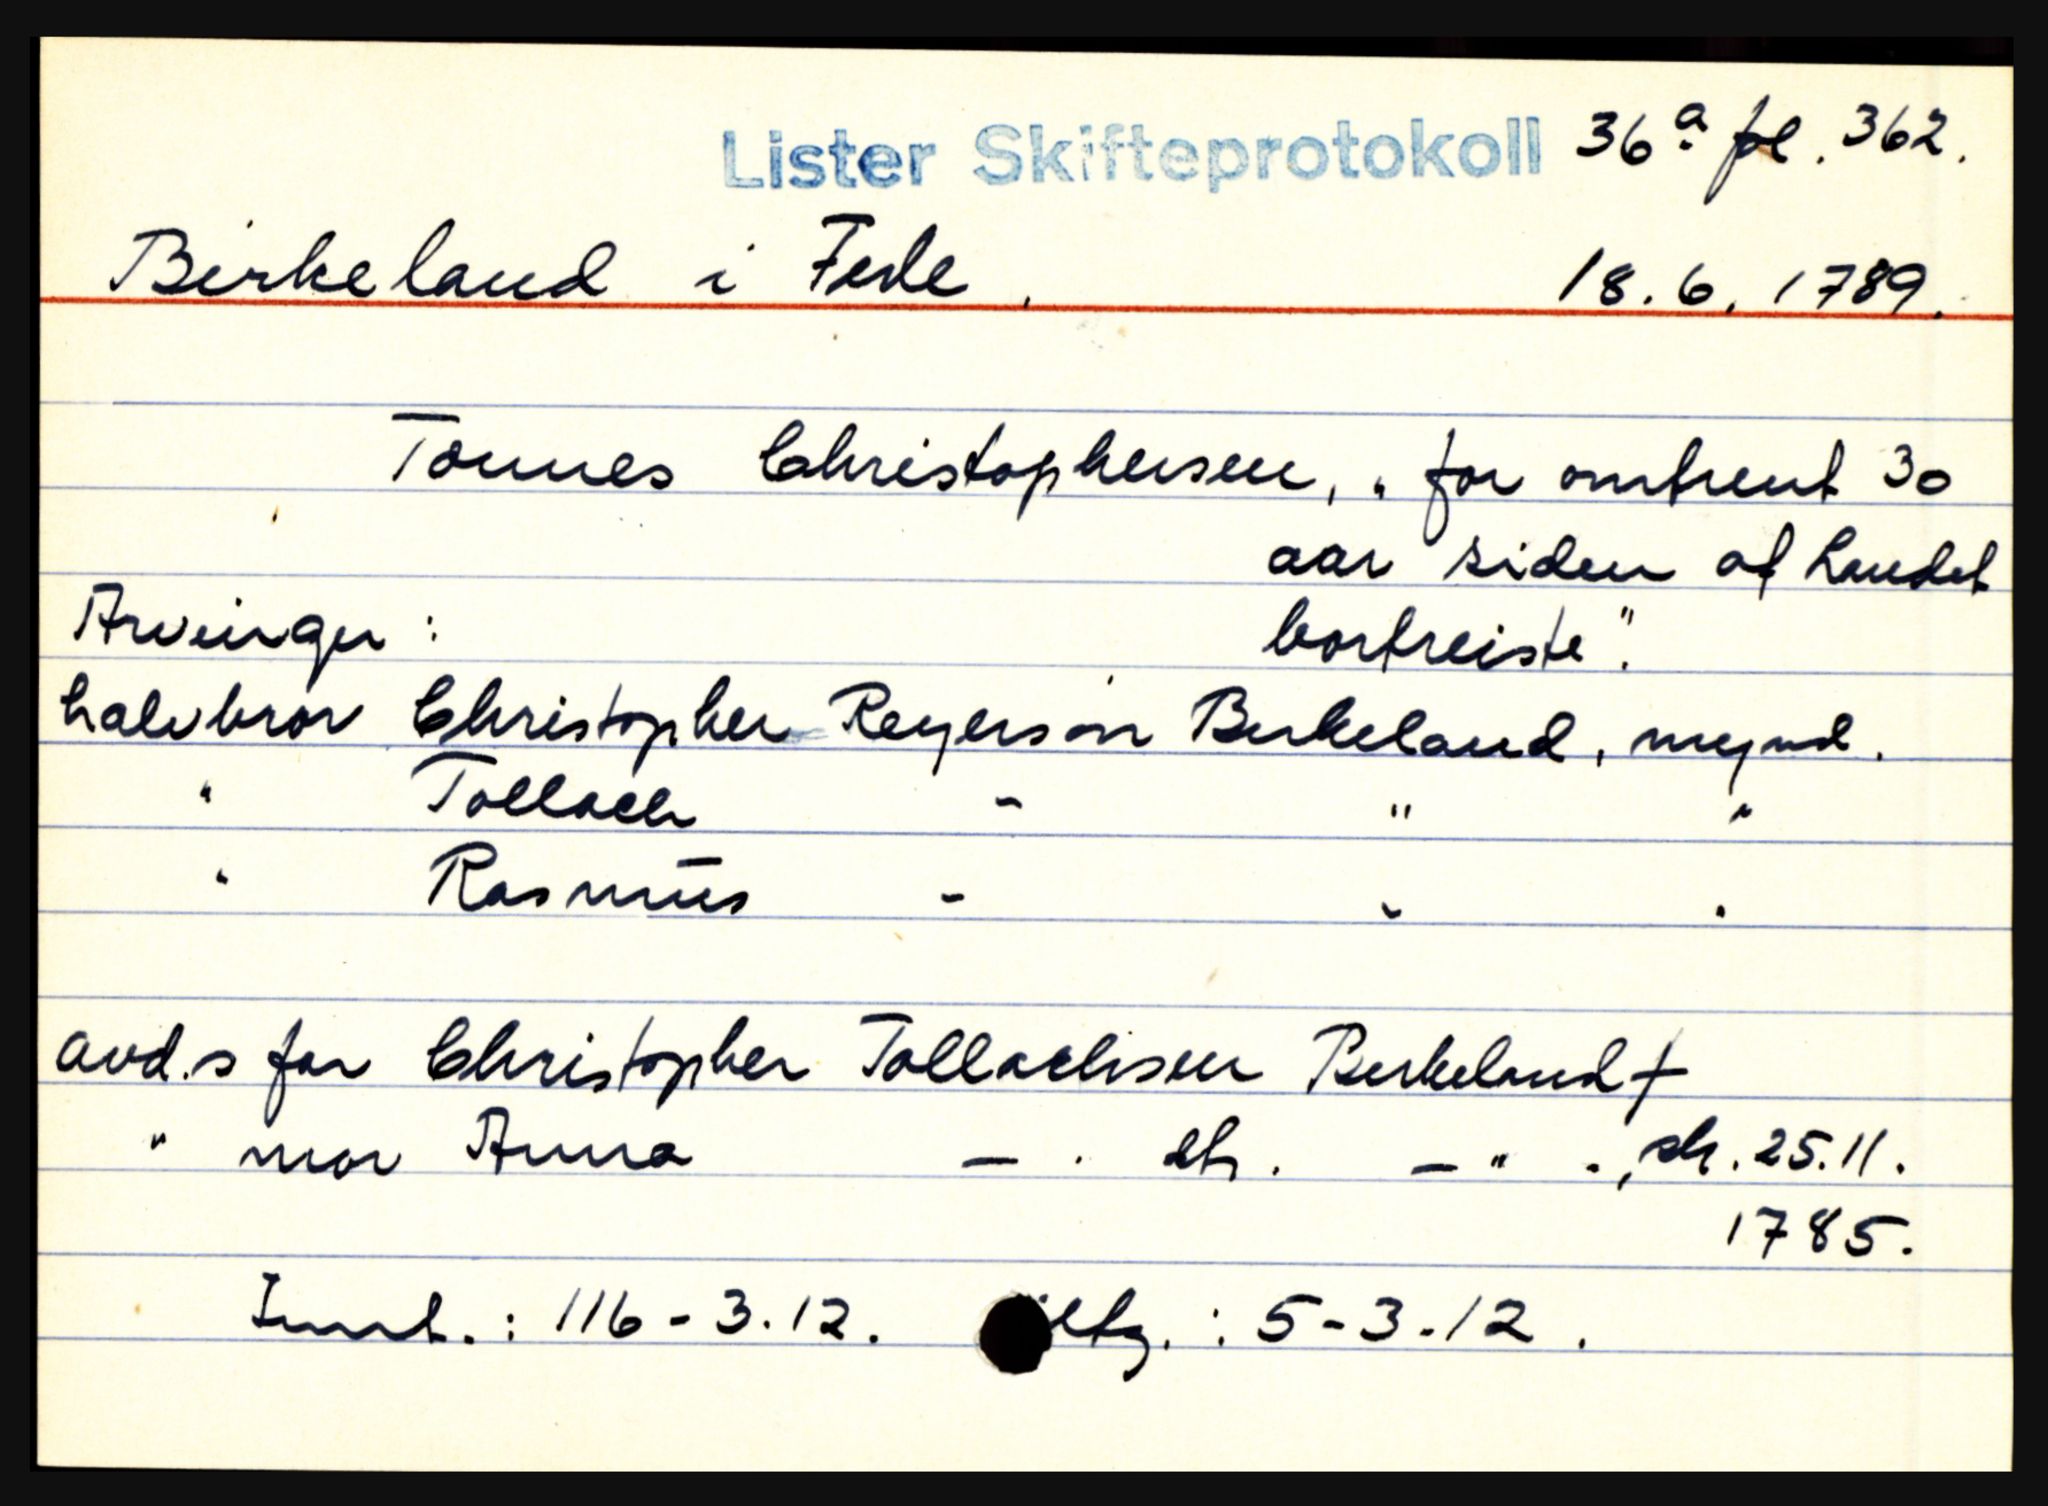 Lister Skifteprotokoll 36a fol. 362.
Birkeland i Fede. 18.6.1789.
Tønnes Christophersen, "for omtrent 30
aar siden af Landet
bortreiste".
Arvinger:
halvbror Christopher Reyersøn Birkeland, mynd.
" Tollach - " "
" Rasmus - " "
avd.s far Christopher Tollachsen Birkeland †
" mor Anna - " dtr. - " -, sk. 25.11.
1785.
Innt.: 116-3.12. : 5-3-12.